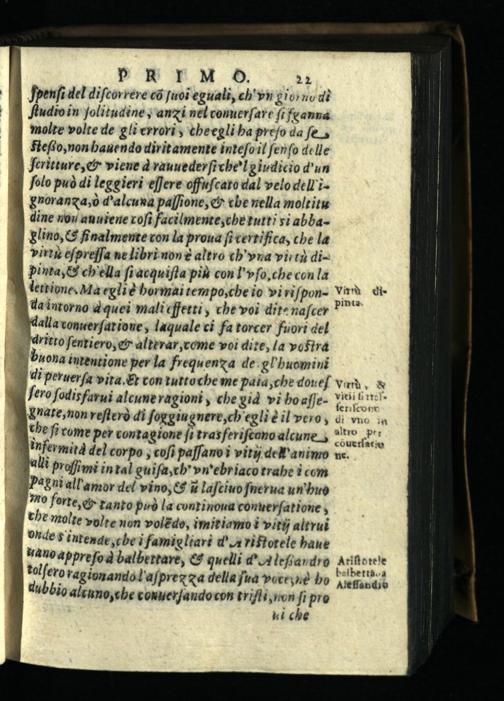 PRIMO. 22
spensi del discorrere cõ suoi eguali, ch'vn giorno di
studio in solitudine, anzi nel conuersare si sganna
molte volte de gli errori, che egli ha preso da se
stesso, non hauendo diritamente inteso il senso delle
scritture, & viene à rauuedersi che'l giudicio d'un
solo può di leggieri essere offuscato dal velo dell'i-
gnoranza, ò d'alcuna passione, & che nella moltitu
dine non auuiene cosi facilmente, che tutti si abba-
glino, & finalmente con la proua si certifica, che la
virtù espressa ne libri non è altro ch'vna virtù di-
pinta, & ch'ella si acquista più con l'vso, che con la
lettione. Ma egli è hormai tempo, che io vi rispon-
da intorno à quei mali effetti, che voi dite nascer
dalla conuersatione, laquale ci fa torcer fuori del
dritto sentiero, & alterar, come voi dite, la vostra
buona intentione per la frequenza de gl'huomini
di peruersa vita. Et con tutto che me paia, che doues
sero sodisfarui alcune ragioni, che già vi ho asse-
gnate, non resterò di soggiugnere, ch'egli è il vero,
che si come per contagione si trasferiscono alcune
infermità del corpo, cosi passano i vitij dell'animo
alli prossimi in tal guisa, ch'vn'ebriaco trahe i com
pagni all'amor del vino, & ũ lasciuo snerua un'huo
mo forte, & tanto può la continoua conuersatione,
che molte volte non volẽdo, imitiamo i vitij altrui
onde s'intende, che i famigliari d'Aristotele haue
uano appreso à balbettare, & quelli d'Alessandro
tolsero ragionando l'asprezza della sua voce, nè ho
dubbio alcuno, che conuersando con tristi, non si pro
ui che
Virtù di-
pinta.
Virtù, &
vitii si tras-
feriscono
di vno in
altro per
cõuersatio
ne.
Aristotele
balbettaua
Alessandro